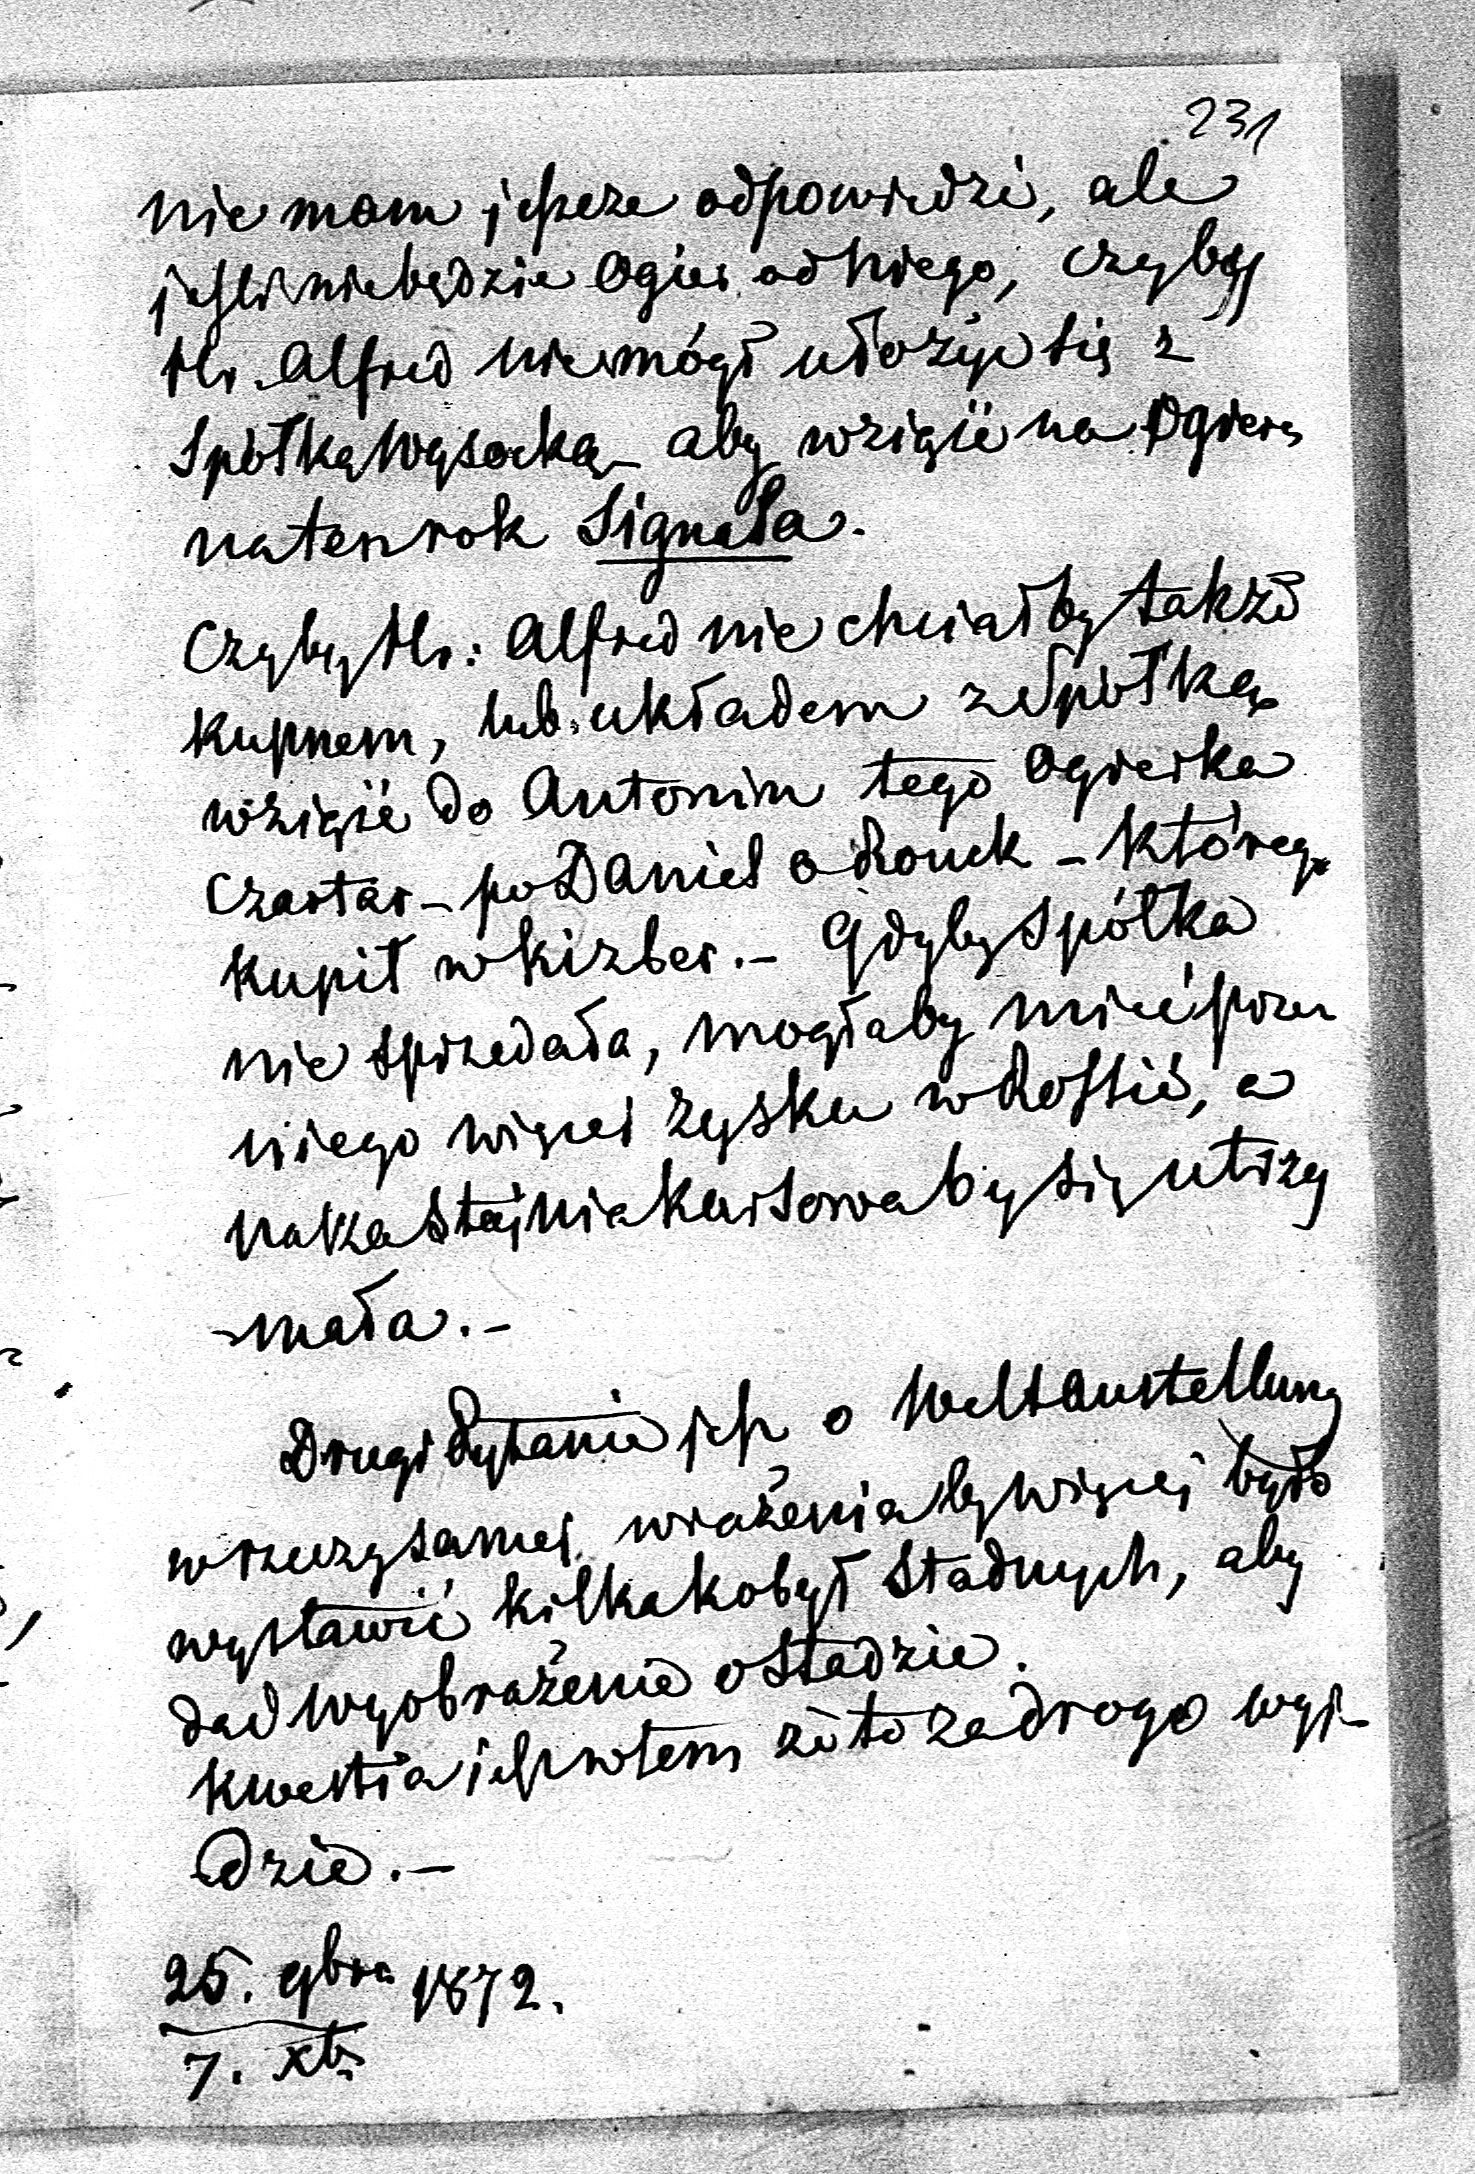 231
nie mam jeszcze odpowiedzi, ale
jeśli niebędzie Ogier od niego, czyby
Hr. Alfred nie mógł ułożyć się z
Spółką Wysocką – aby wziąść na Ogiera
na ten rok Signała.
Czyby Hr: Alfred nie chciałby także
kupnem, lub układem z Spółką
wziąść do Antonin tego Ogierka
Czartar – po Daniel o Rouck – którego
kupił w Kizber. – Gdyby Spółka
nie sprzedała, mogłaby mieć przez
niego więcej zysku w Rossie, a
nasza stajnia kursowa by się utrzy
-mała. –
Drugi Pytanie jest o Weltaustellung
w rzeczy samej wrażenia by więcej było
wystawić kilka kobył stadnych, aby
dać wyobrażenie o stadzie.
kwestia jest w tem że to za drogo wyj-
dzie. –
25. 9bra 1872.
7. xbr